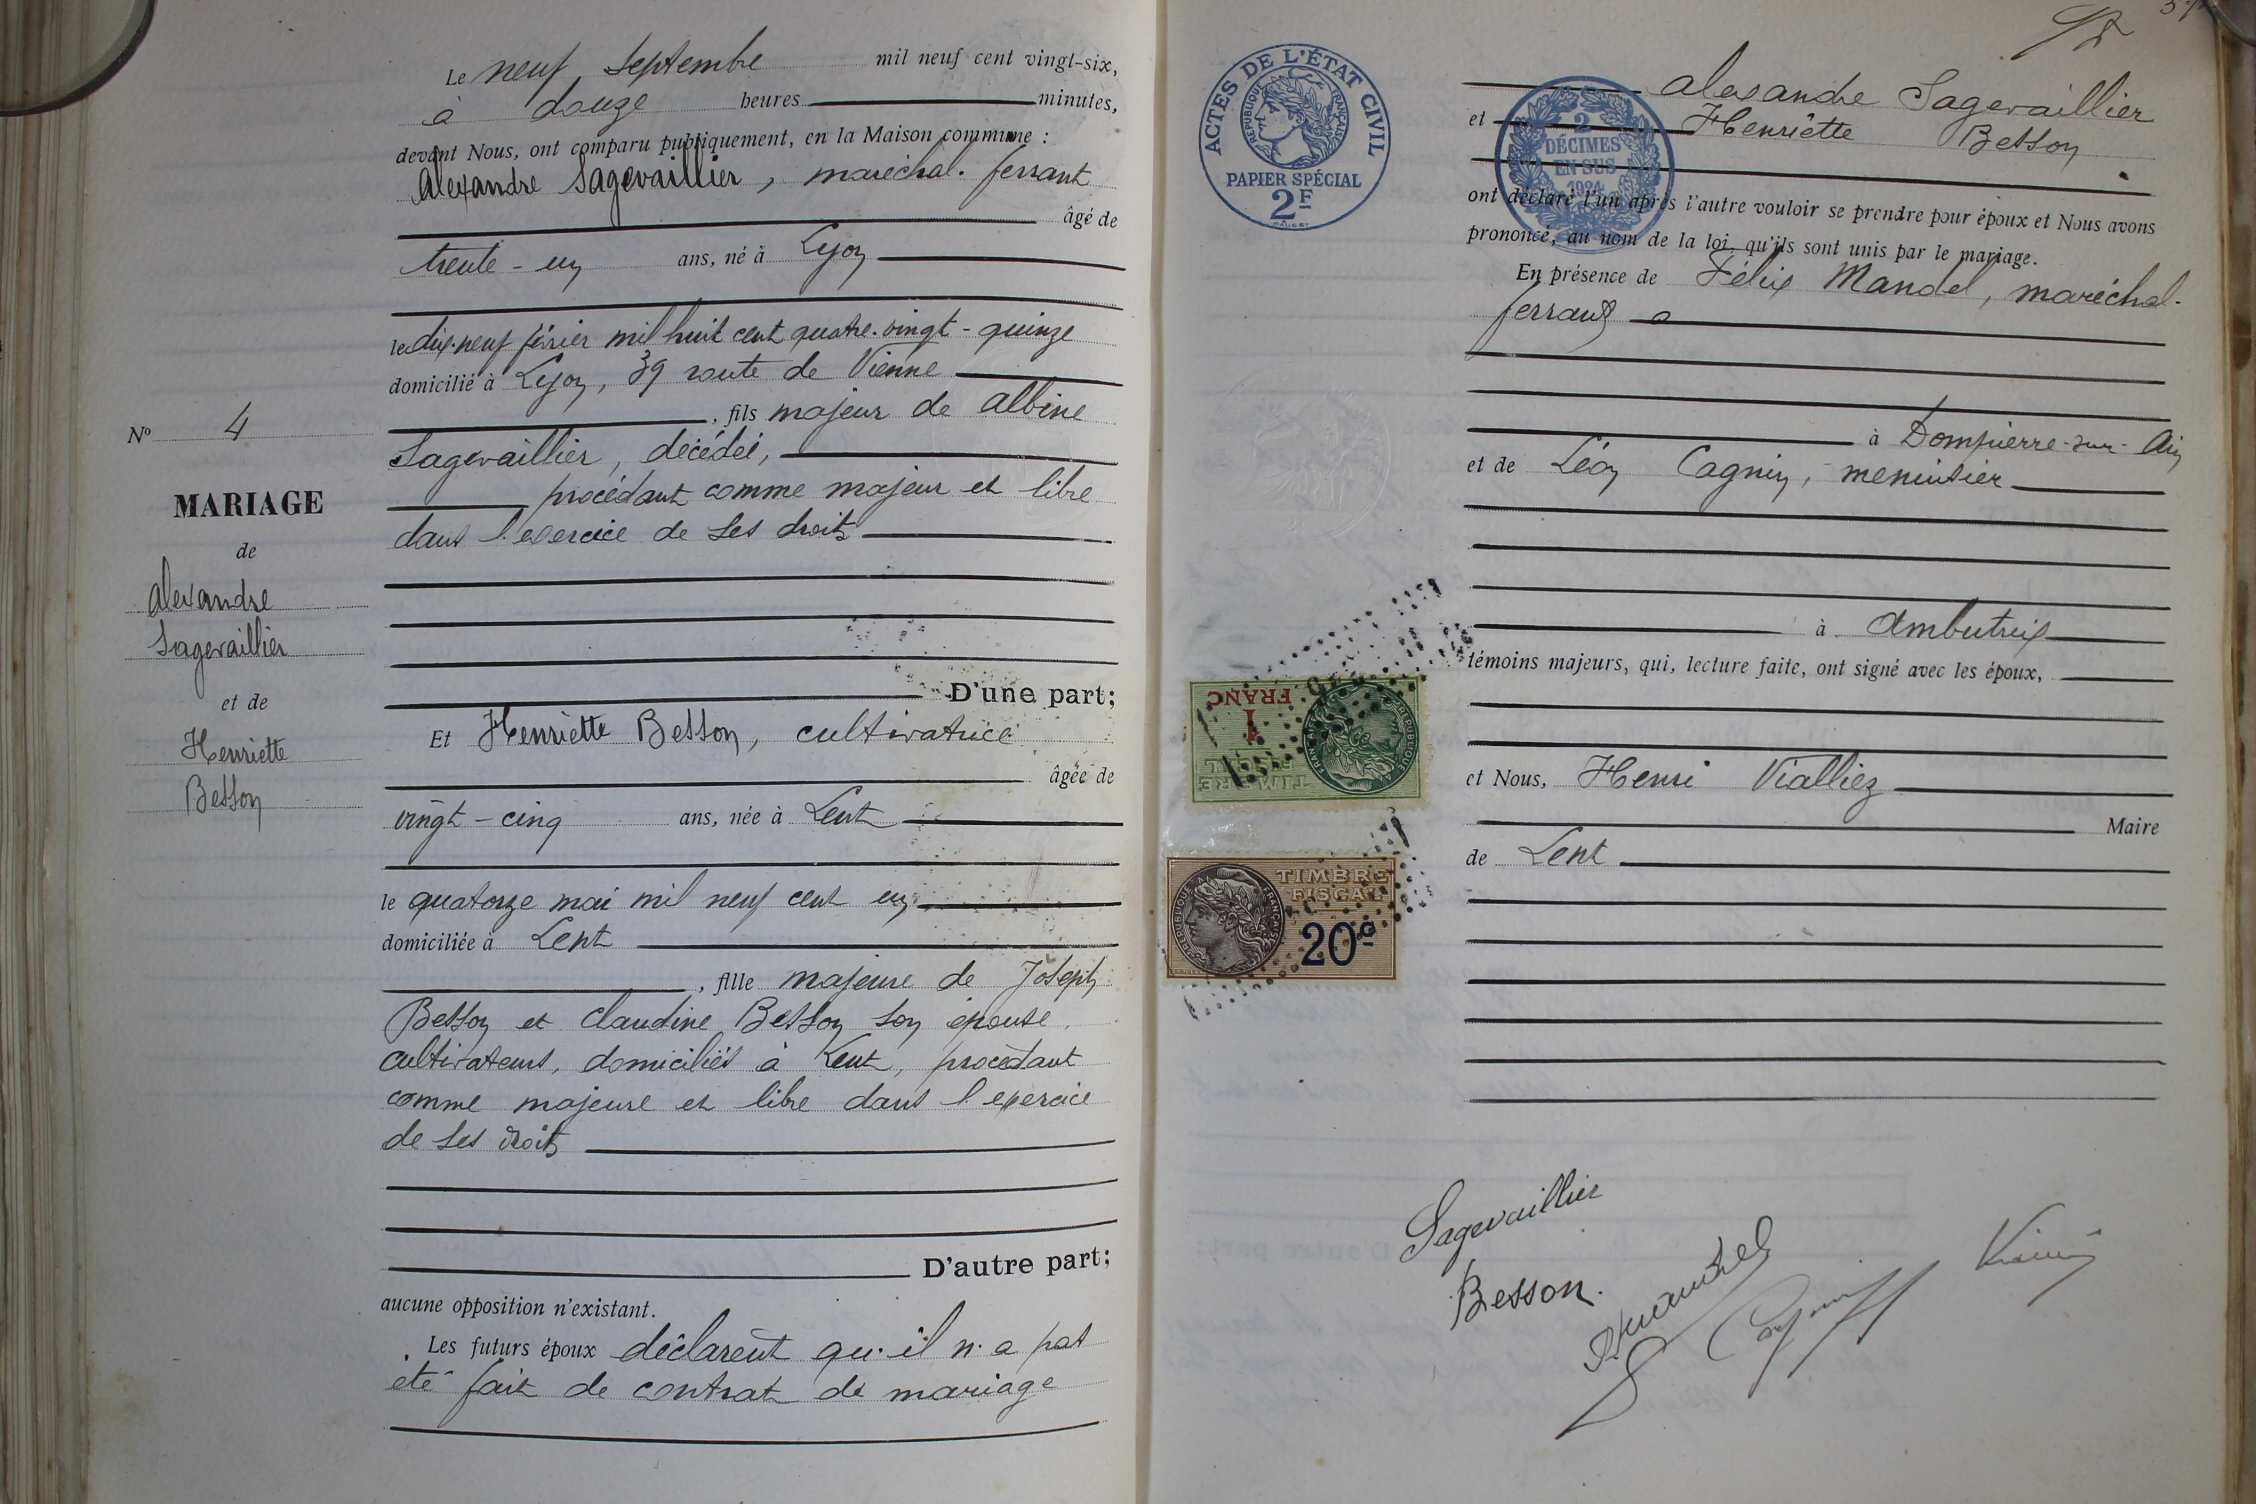 Le neuf Septembre mil neuf cent vingt-six,
à douze heures minutes,
devant Nous, ont comparu publiquement, en la Maison commune :
Alexandre Sagevaillier, maréchal-ferrant
âgé de
trente-un ans, né à Lyon
le dix-neuf février mil huit cent quatre-vingt-quinze
domicilié à Lyon, 39 route de Vienne
, fils majeur de Albine
Sagevaillier, décédée,
procédant comme majeur et libre
dans l'exercice de ses droits
D'une part;
Et Henriette Besson, cultivatrice
âgée de
vingt-cinq ans, née à Lent
le quatorze mai mil neuf cent un
domiciliée à Lent
, fille majeure de Joseph
Besson et Claudine Besson son épouse
cultivateurs, domiciliés à Lent, procédant
comme majeure et libre dans l'exercice
de ses droits
D'autre part;
aucune opposition n'existant.
Les futurs époux déclarent qu'il n'a pas
été fait de contrat de mariage
No 4
MARIAGE
de
Alexandre
Sagevaillier
et de
Henriette
Besson
ACTES DE L'ÉTAT CIVIL
RÉPUBLIQUE FRANÇAISE
PAPIER SPÉCIAL
2F
2
DÉCIMES
EN SUS
1924
Alexandre Sagevaillier
et Henriette Besson
ont déclaré l'un après l'autre vouloir se prendre pour époux et Nous avons
prononcé, au nom de la loi, qu'ils sont unis par le mariage.
En présence de Félix Mandel, maréchal-
ferrant
à Dompierre-sur-Ain
et de Léon Cagnin, menuisier
à Ambutrix
témoins majeurs, qui, lecture faite, ont signé avec les époux,
et Nous, Henri Vialliez
Maire
de Lent
1
FRANC
TIMBRE
FISCAL
RÉPUBLIQUE FRANÇAISE
TIMBRE
FISCAL
20c
RÉPUBLIQUE FRANÇAISE
Sagevaillier
Besson.